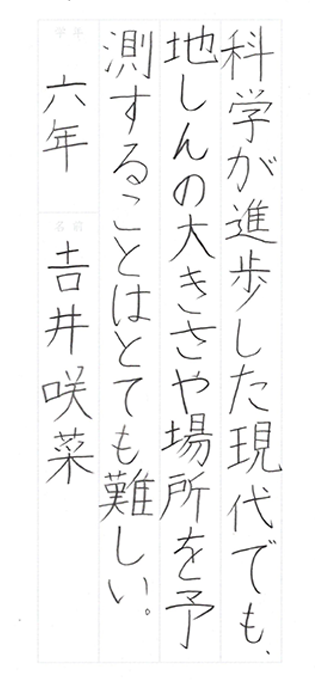 科学が進歩した現代でも、
地しんの大きさや場所を予
測することはとても難しい。
学年
六年
名前
𠮷井咲菜